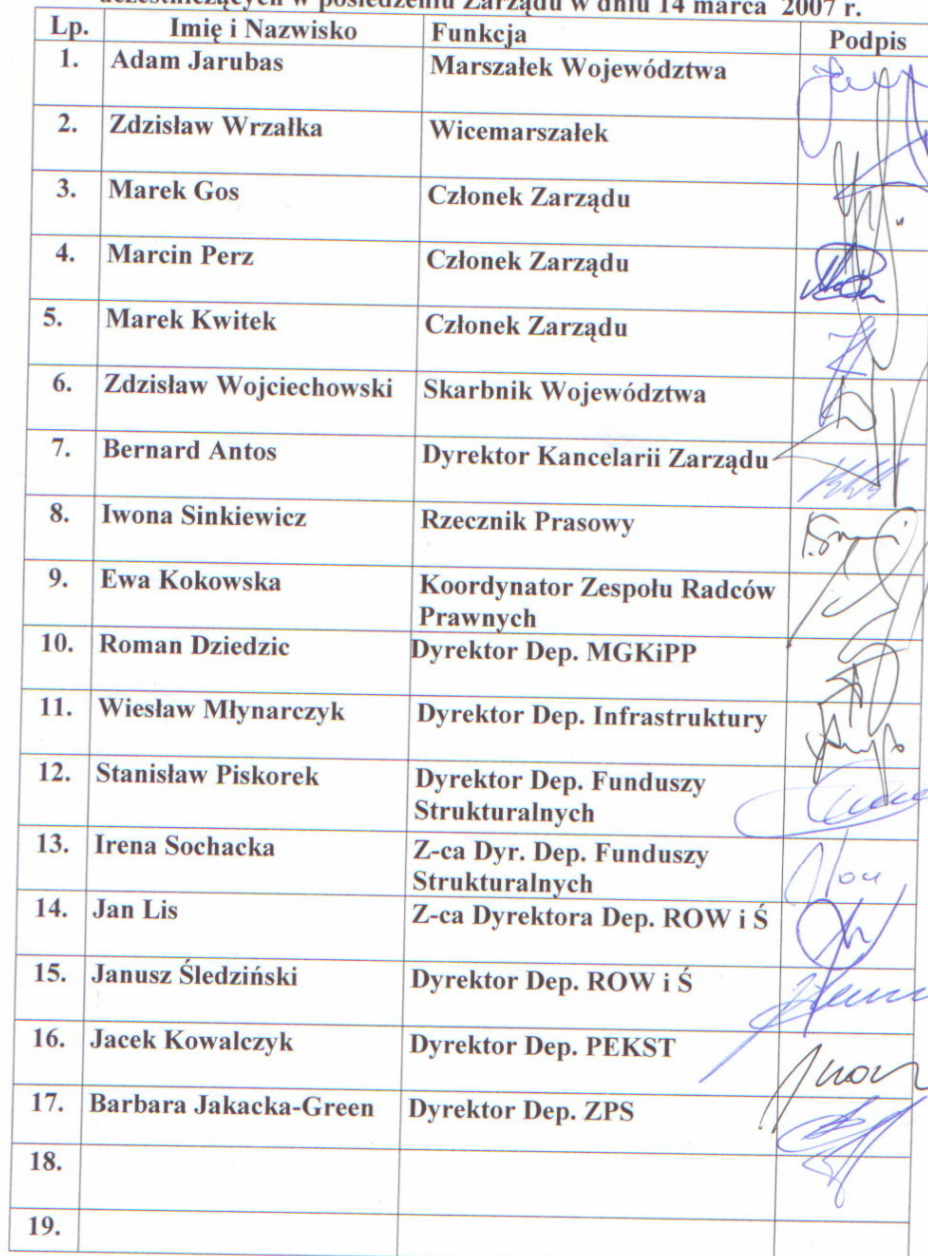 uczestniczących w posiedzeniu Zarządu w dniu 14 marca 2007 r.
Lp. Imię i Nazwisko Funkcja Podpis
1. Adam Jarubas Marszałek Województwa
2. Zdzisław Wrzałka Wicemarszałek
3. Marek Gos Członek Zarządu
4. Marcin Perz Członek Zarządu
5. Marek Kwitek Członek Zarządu
6. Zdzisław Wojciechowski Skarbnik Województwa
7. Bernard Antos Dyrektor Kancelarii Zarządu
8. Iwona Sinkiewicz Rzecznik Prasowy
9. Ewa Kokowska Koordynator Zespołu Radców
Prawnych
10. Roman Dziedzic Dyrektor Dep. MGKiPP
11. Wiesław Młynarczyk Dyrektor Dep. Infrastruktury
12. Stanisław Piskorek Dyrektor Dep. Funduszy
Strukturalnych
13. Irena Sochacka Z-ca Dyr. Dep. Funduszy
Strukturalnych
14. Jan Lis Z-ca Dyrektora Dep. ROW i Ś
15. Janusz Śledziński Dyrektor Dep. ROW i Ś
16. Jacek Kowalczyk Dyrektor Dep. PEKST
17. Barbara Jakacka-Green Dyrektor Dep. ZPS
18.
19.